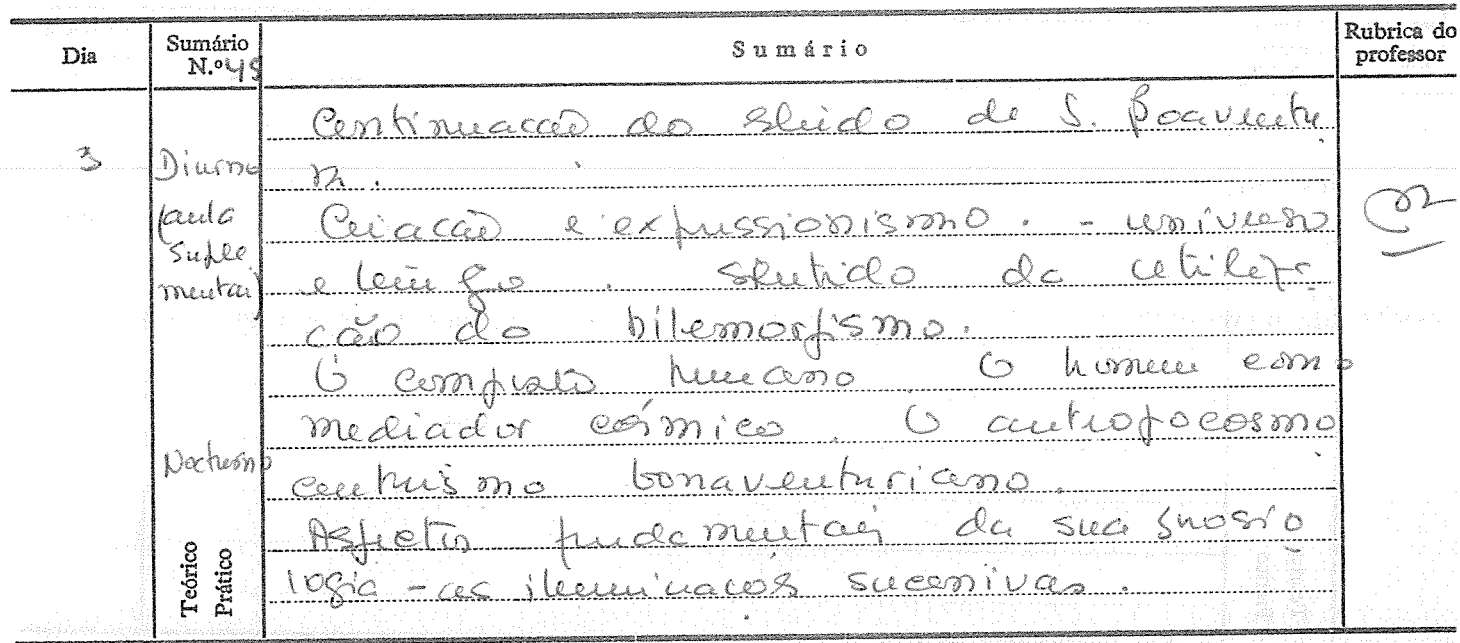 Dia
Sumário N.º 49
Sumário
Rubrica do professor
3
Diurno (aula suplementar)
Nocturno
Teórico
Prático
Continuação do estudo de S. Boaventu
ra.
Criação e expressionismo. - universo
e tempo. Sentido da utiliza-
ção do hilemorfismo.
O composto humano O homem como
mediador cósmico. O antropocosmo
centrismo bonaventuriano.
Aspectos fundamentais da sua gnosio
logia - as iluminações sucessivas.